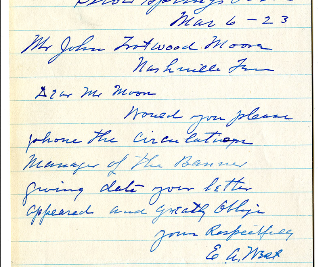 Springs
Mar 6 - 23
Mr John Trotwood Moore
Nashville Tenn
Dear Mr Moore
Would you please
phone the circulation
Manager of the Banner
giving date your letter
appeared and greatly oblige
yours Respectfully
E A. West